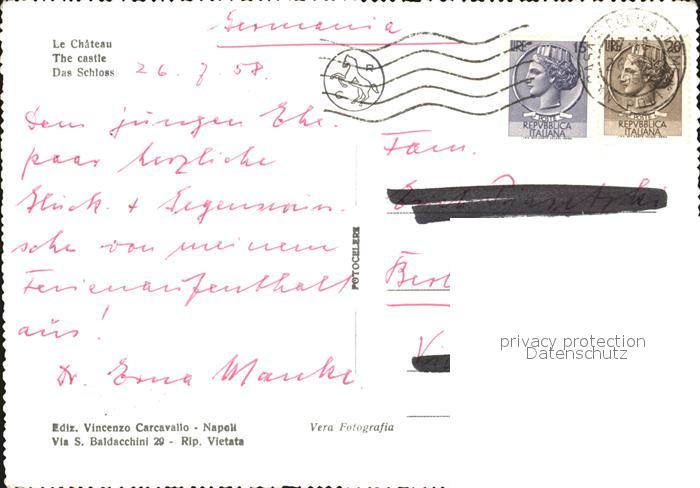 Germania
Le Château
The castle
Das Schloss
26. 7. 58.
LIRE 15
LIRE 20
POSTE
REPVBBLICA
ITALIANA
POSTE
REPVBBLICA
ITALIANA
Dem jungen Ehe-
paar herzliche
Glück- + Segenswün-
sche von meinem
Ferienaufenthalt
aus!
Dr. Erna
Fam.
FOTOCELERE
privacy protection
Datenschutz
Ediz. Vincenzo Carcavallo - Napoli
Via S. Baldacchini 29 - Rip. Vietata
Vera Fotografia